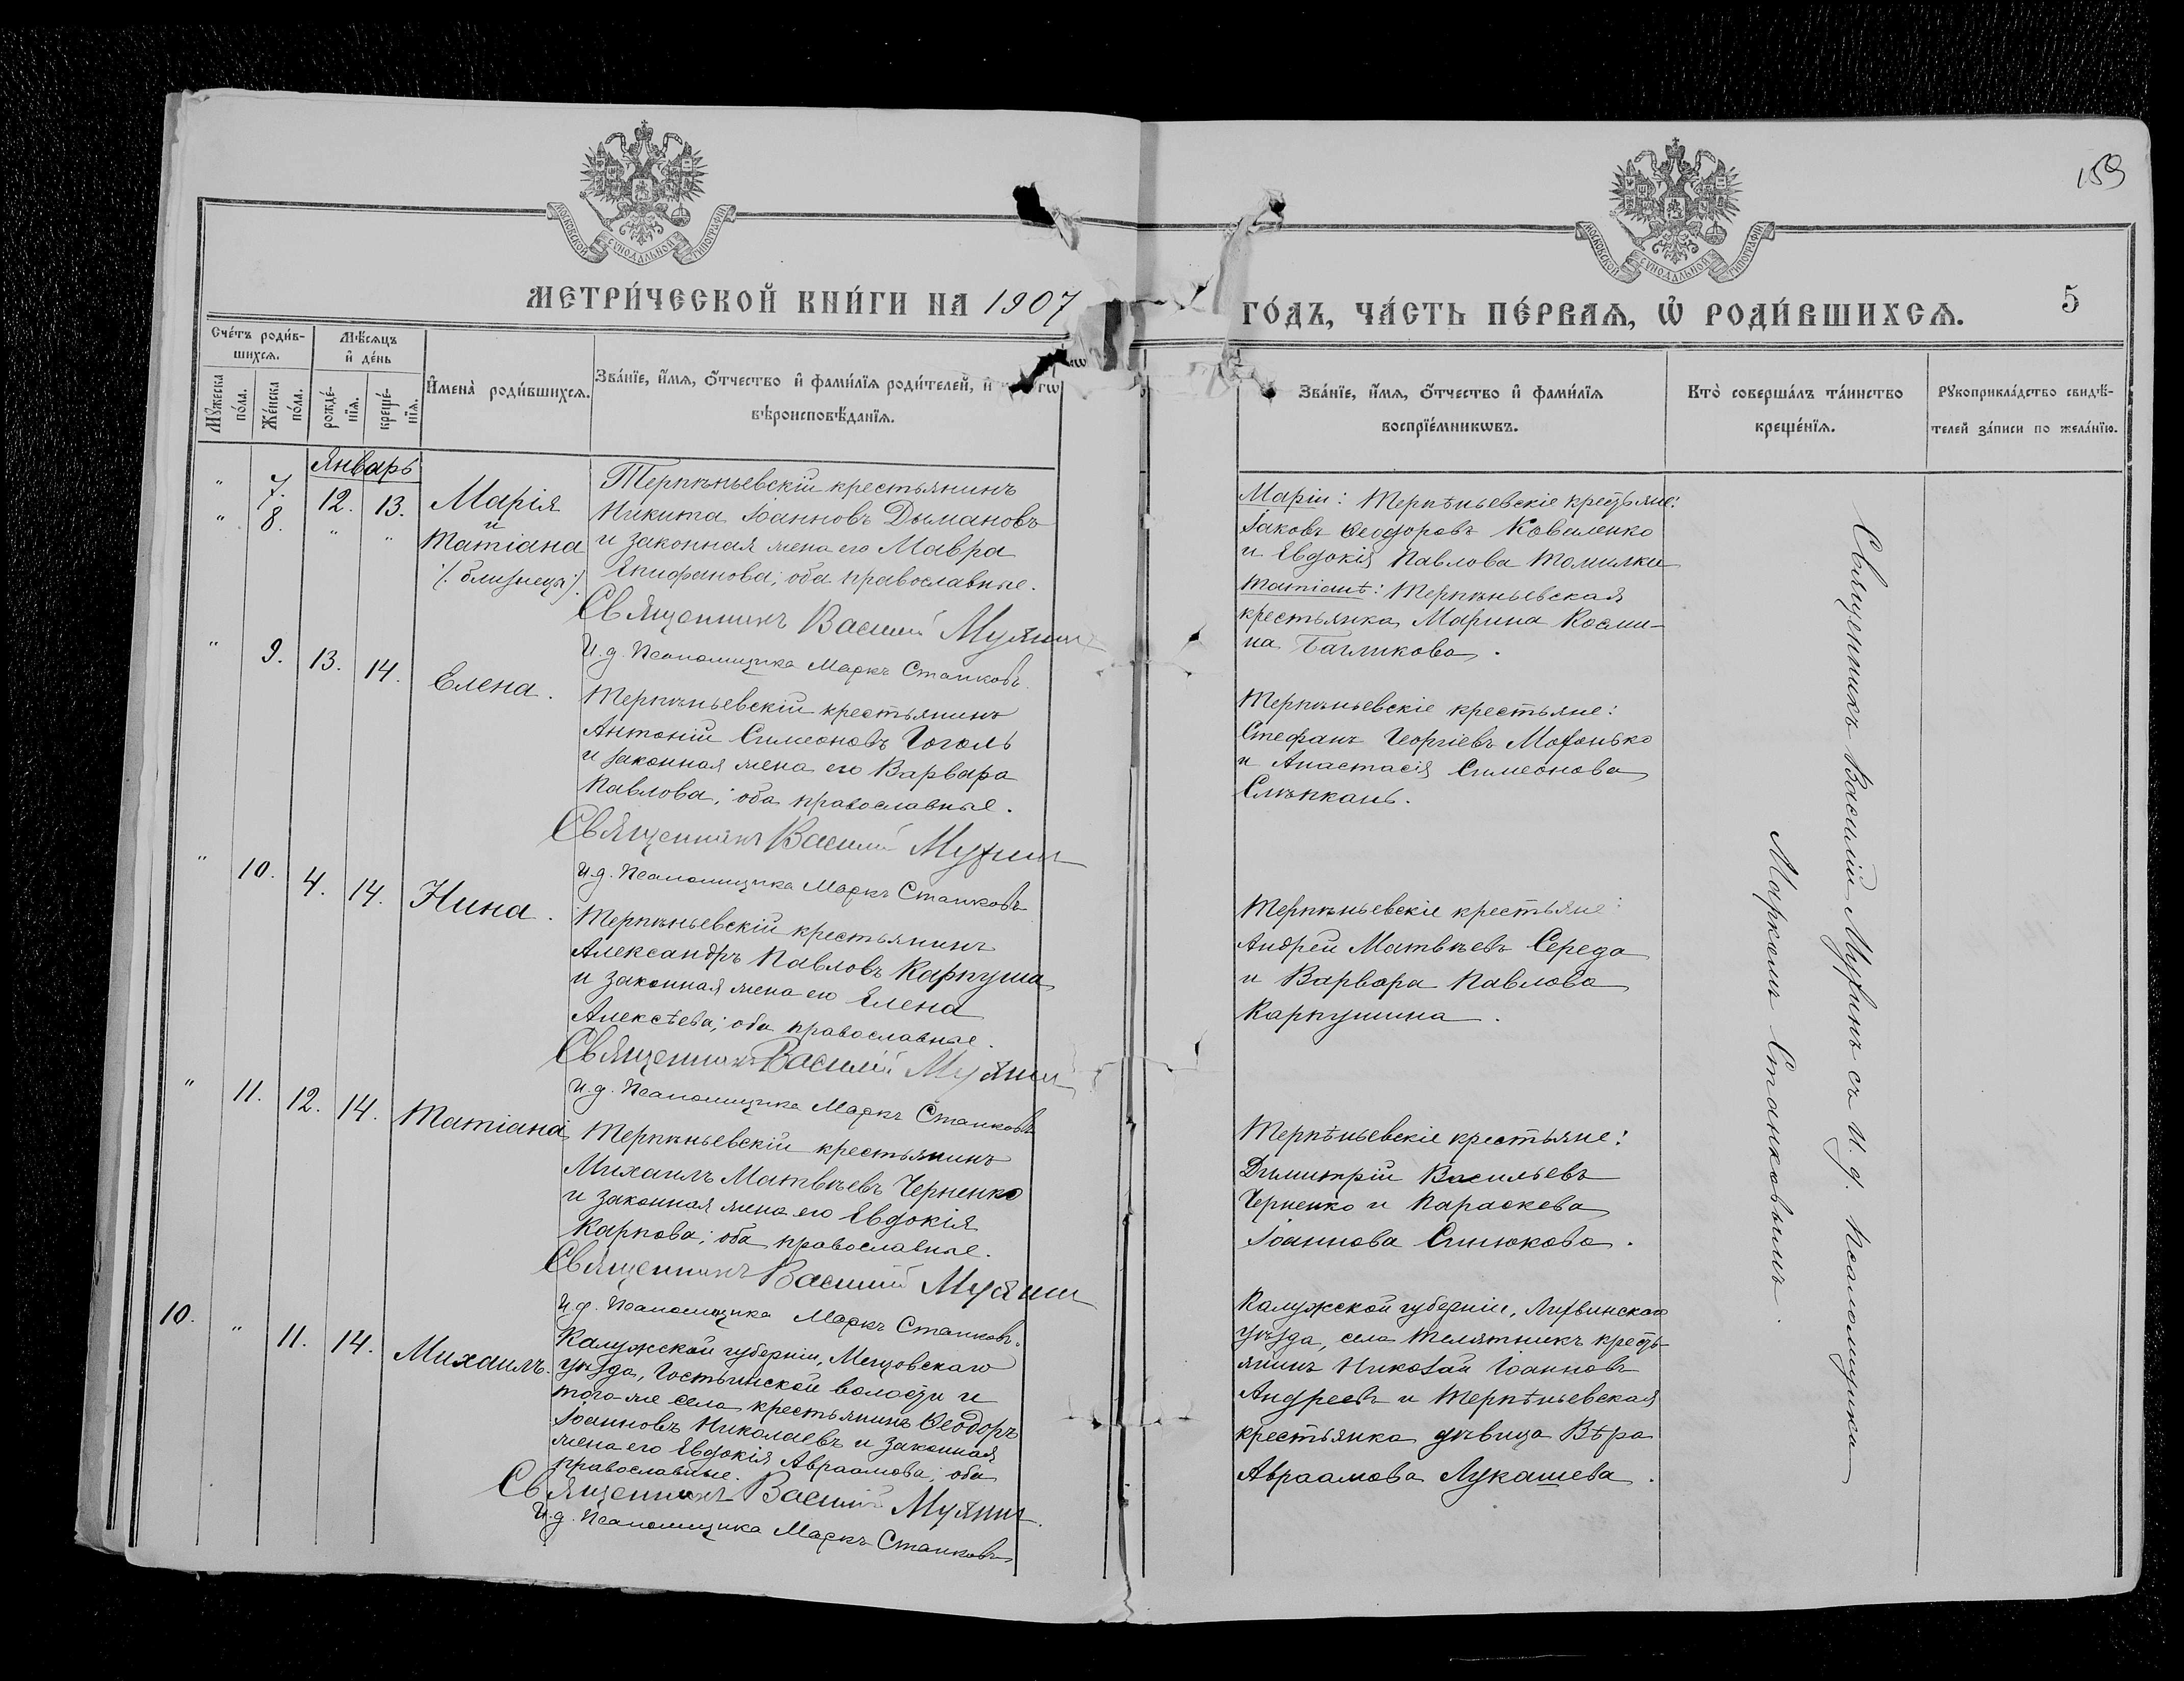 159
МОСКОВСКОЙ СѴНОДАЛЬНОЙ ТИПОГРАФІИ
МОСКОВСКОЙ СѴНОДАЛЬНОЙ ТИПОГРАФІИ
МЕТРИ́ЧЕСКОЙ КНИ́ГИ НА 1907
ГО́ДЪ, ЧА́СТЬ ПЕ́РВАѦ, Ѡ҆ РОДИ́ВШИХСѦ.
5
Сче́тъ роди́в-
шихсѧ.
Мѣ́сѧцъ
и҆ де́нь
Мꙋ́жеска
по́ла.
Же́нска
по́ла.
рожде́-
нїѧ.
креще́-
нїѧ.
И҆мена̀ роди́вшихсѧ.
Зва́нїе, и҆́мѧ, ѻ҆́тчество и҆ фами́лїѧ роди́телей, и҆
вѣроисповѣ́данїѧ.
Зва́нїе, и҆́мѧ, ѻ҆́тчество и҆ фами́лїѧ
воспрїе́мникѡвъ.
Кто̀ соверша́лъ та́инство
креще́нїѧ.
Рꙋкоприкла́дство свидѣ́-
телей за́писи по жела́нїю.
Январь
" 7. 12. 13. Марія
" 8. " " и
Татіана
/: близнецы :/
Терпѣньевскій крестьянинъ
Никита Іоанновъ Дымановъ
и законная жена его Мавра
Епифанова; оба православные.
Священникъ Василій Мухинъ
И.д. Псаломщика Маркъ Станковъ.
Маріи: Терпѣньевскіе крестьяне:
Іаковъ Ѳеодоровъ Коваленко
и Евдокія Павлова Томилки
Татіанѣ: Терпѣньевская
крестьянка Марина Косми-
на Багликова.
" 9. 13. 14. Елена.
Терпѣньевскій крестьянинъ
Антоній Симеоновъ Гоголь
и законная жена его Варвара
Павлова; оба православные.
Священникъ Василій Мухинъ
И.д. Псаломщика Маркъ Станковъ
Терпѣньевскіе крестьяне:
Стефанъ Георгіевъ
и Анастасія Симеонова
Слѣпкань.
" 10. 4. 14. Нина.
Терпѣньевскій крестьянинъ
Александръ Павловъ Карпуша
и законная жена его Елена
Алексѣева; оба православные.
Священникъ Василій Мухинъ
И.д. Псаломщика Маркъ Станковъ
Терпѣньевскіе крестьяне:
Андрей Матвѣевъ Середа
и Варвара Павлова
Карпушина.
" 11. 12. 14. Татіана
Терпѣньевскій крестьянинъ
Михаилъ Матвѣевъ Черненко
и законная жена его Евдокія
Карпова; оба православные.
Священникъ Василій Мухинъ
И.д. Псаломщика Маркъ Станковъ.
Терпѣньевскіе крестьяне:
Димитрій Васильевъ
Черненко и Параскева
Іоаннова Синюкова.
10. " 11. 14. Михаилъ.
Калужской губерніи, Мещовскаго
уѣзда, Гостьинской волости и
того же села крестьянинъ Ѳеодоръ
Іоанновъ Николаевъ и законная
жена его Евдокія Авраамова; оба
православные.
Священникъ Василій Мухинъ.
И.д. Псаломщика Маркъ Станковъ
Калужской губерніи, Лихвинскаго
уѣзда, села Телятникъ кресть-
янинъ Николай Іоанновъ
Андреевъ и Терпѣньевская
крестьянка дѣвица Вѣра
Авраамова Лукашева.
Священникъ Василій Мухинъ съ И.д. Псаломщика
Маркомъ Станковымъ.